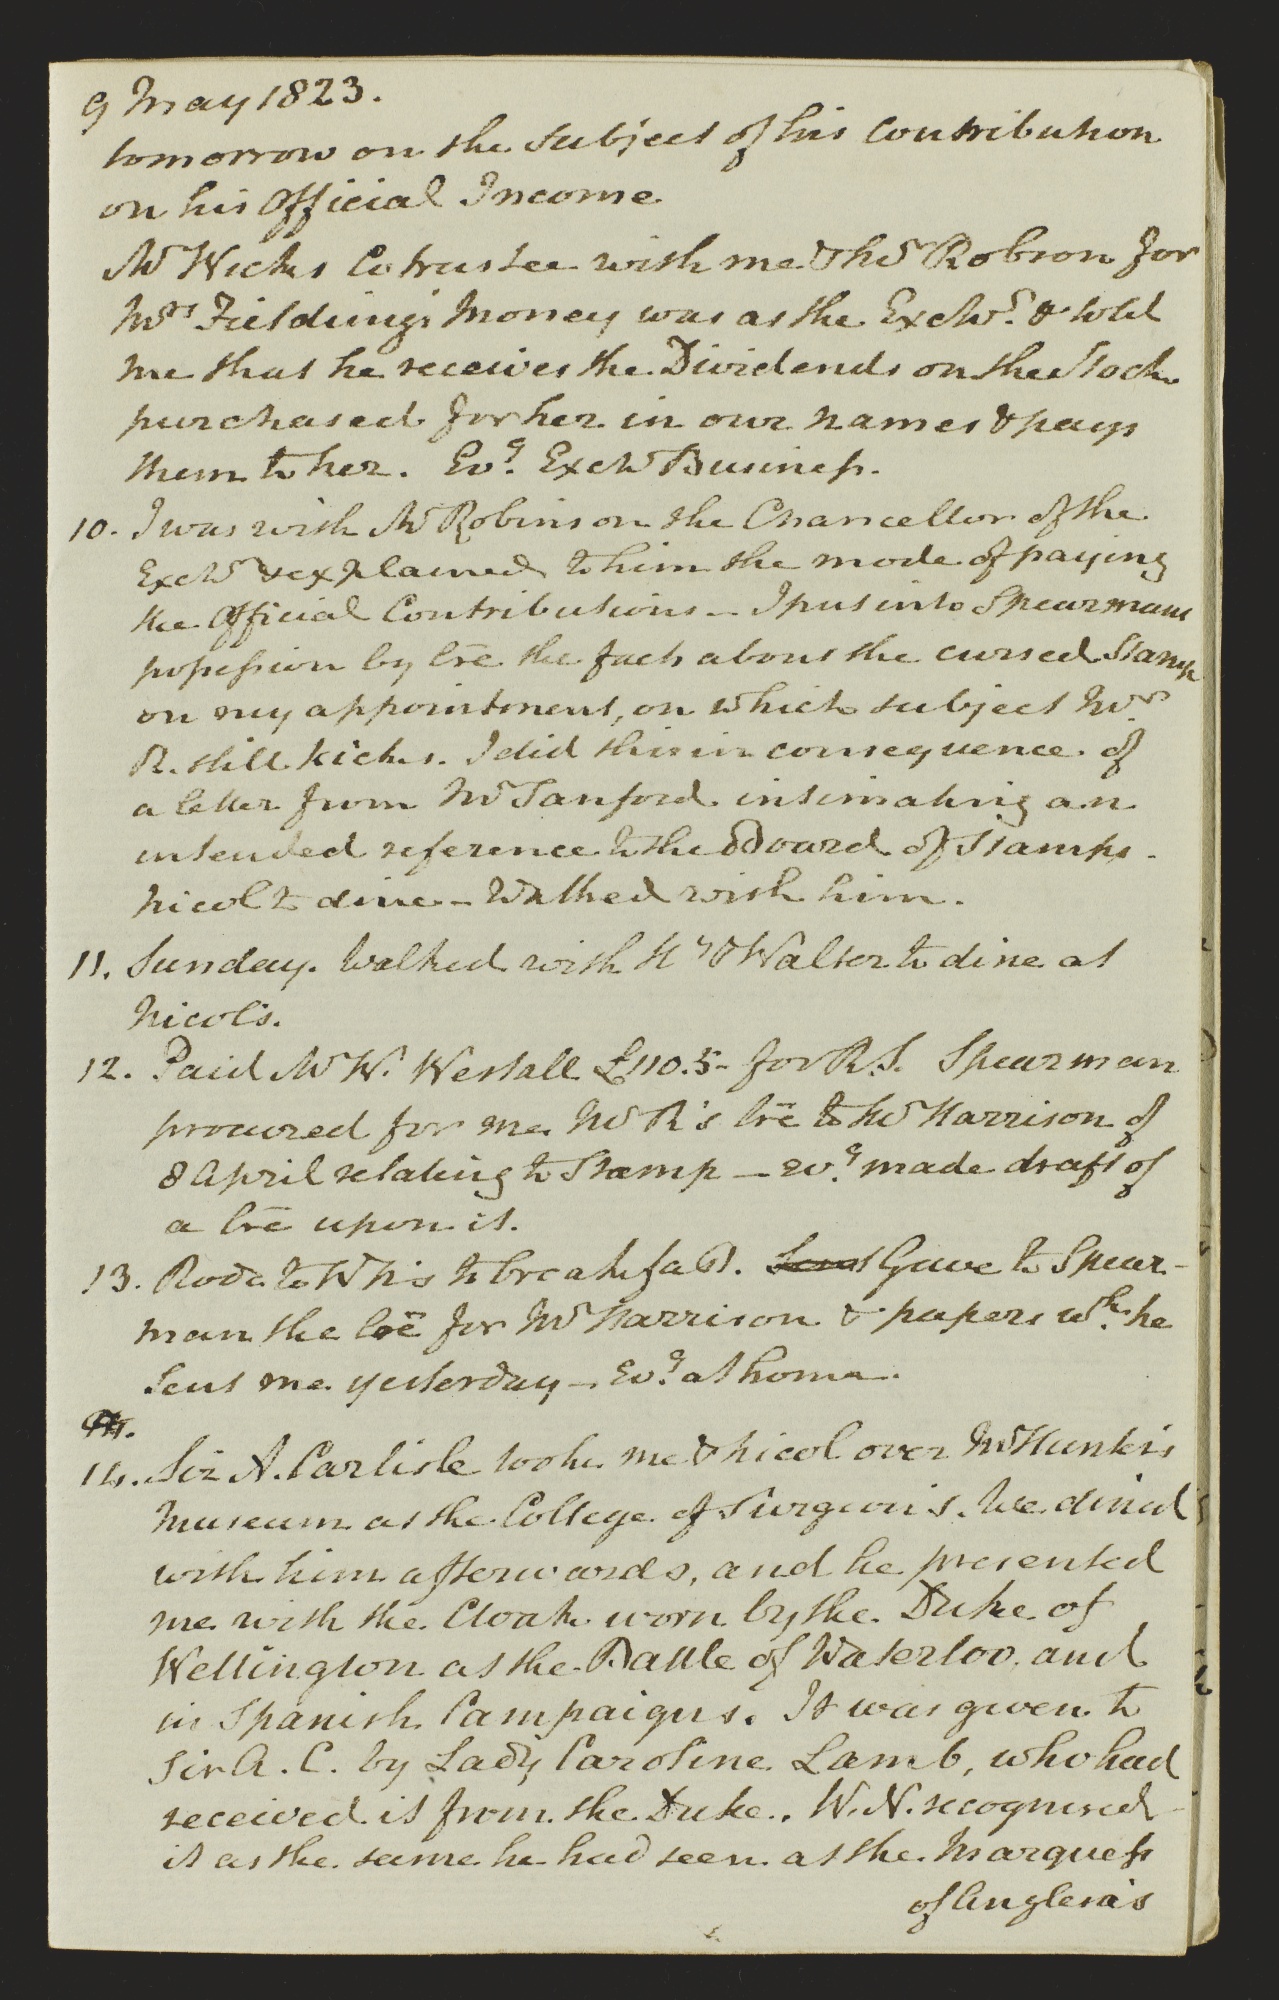 9 May 1823.
tomorrow on the subject of his Contribution
on his Official Income
Mr Wicks Cotrustee with me & Mr Robson for
Mrs Fielding's Money was at the Exchr. & told
me that he receives the Dividends on the Stock
purchased for her in our names & pays
them to her. Evg. Exchr Business.
10. I was with Mr Robinson the Chancellor of the
Exchr & explained to him the mode of paying
the Official Contributions - I put into Spearmans
possession by lre the facts about the cursed Stamp
on my appointment, on which subject Mr
R. still kicks. I did this in consequence of
a letter from Mr Sanford intimating an
intended reference to the Board of Stamps -
Nicol to dine - Walked with him.
11. Sunday. Walked with Hy & Walter to dine at
Nicol's.
12. Paid Mr W. Westall £110.5- for R.S. Spearman
procured for me Mr R's lre to Mr Harrison of
8 April relating to Stamp - evg. made draft of
a lre upon it.
13. Rode to Wh's to breakfast. Sent Gave to Spear-
man the lre for Mr Harrison & papers wh. he
sent me yesterday - Evg. at home.
14. Sir A. Carlisle took me & Nicol over Mr Hunter's
Museum at the College of Surgeon's. We dined
with him afterwards, and he presented
me with the Cloak worn by the Duke of
Wellington at the Battle of Waterloo, and
in Spanish Campaigns. It was given to
Sir A. C. by Lady Caroline Lamb, who had
received it from the Duke. W.N. recognised
it as the same he had seen at the Marquess
of Anglesea's